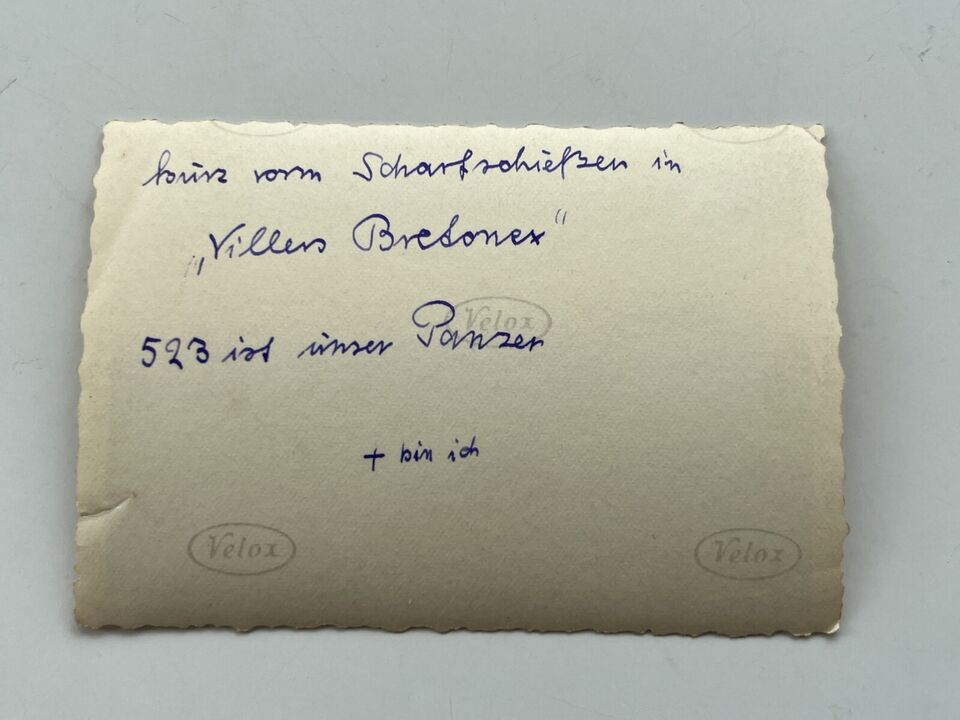 kurz vorm Scharfschießen in
„Villers Bretonex“
Velox
523 ist unser Panzer
+ bin ich
Velox
Velox